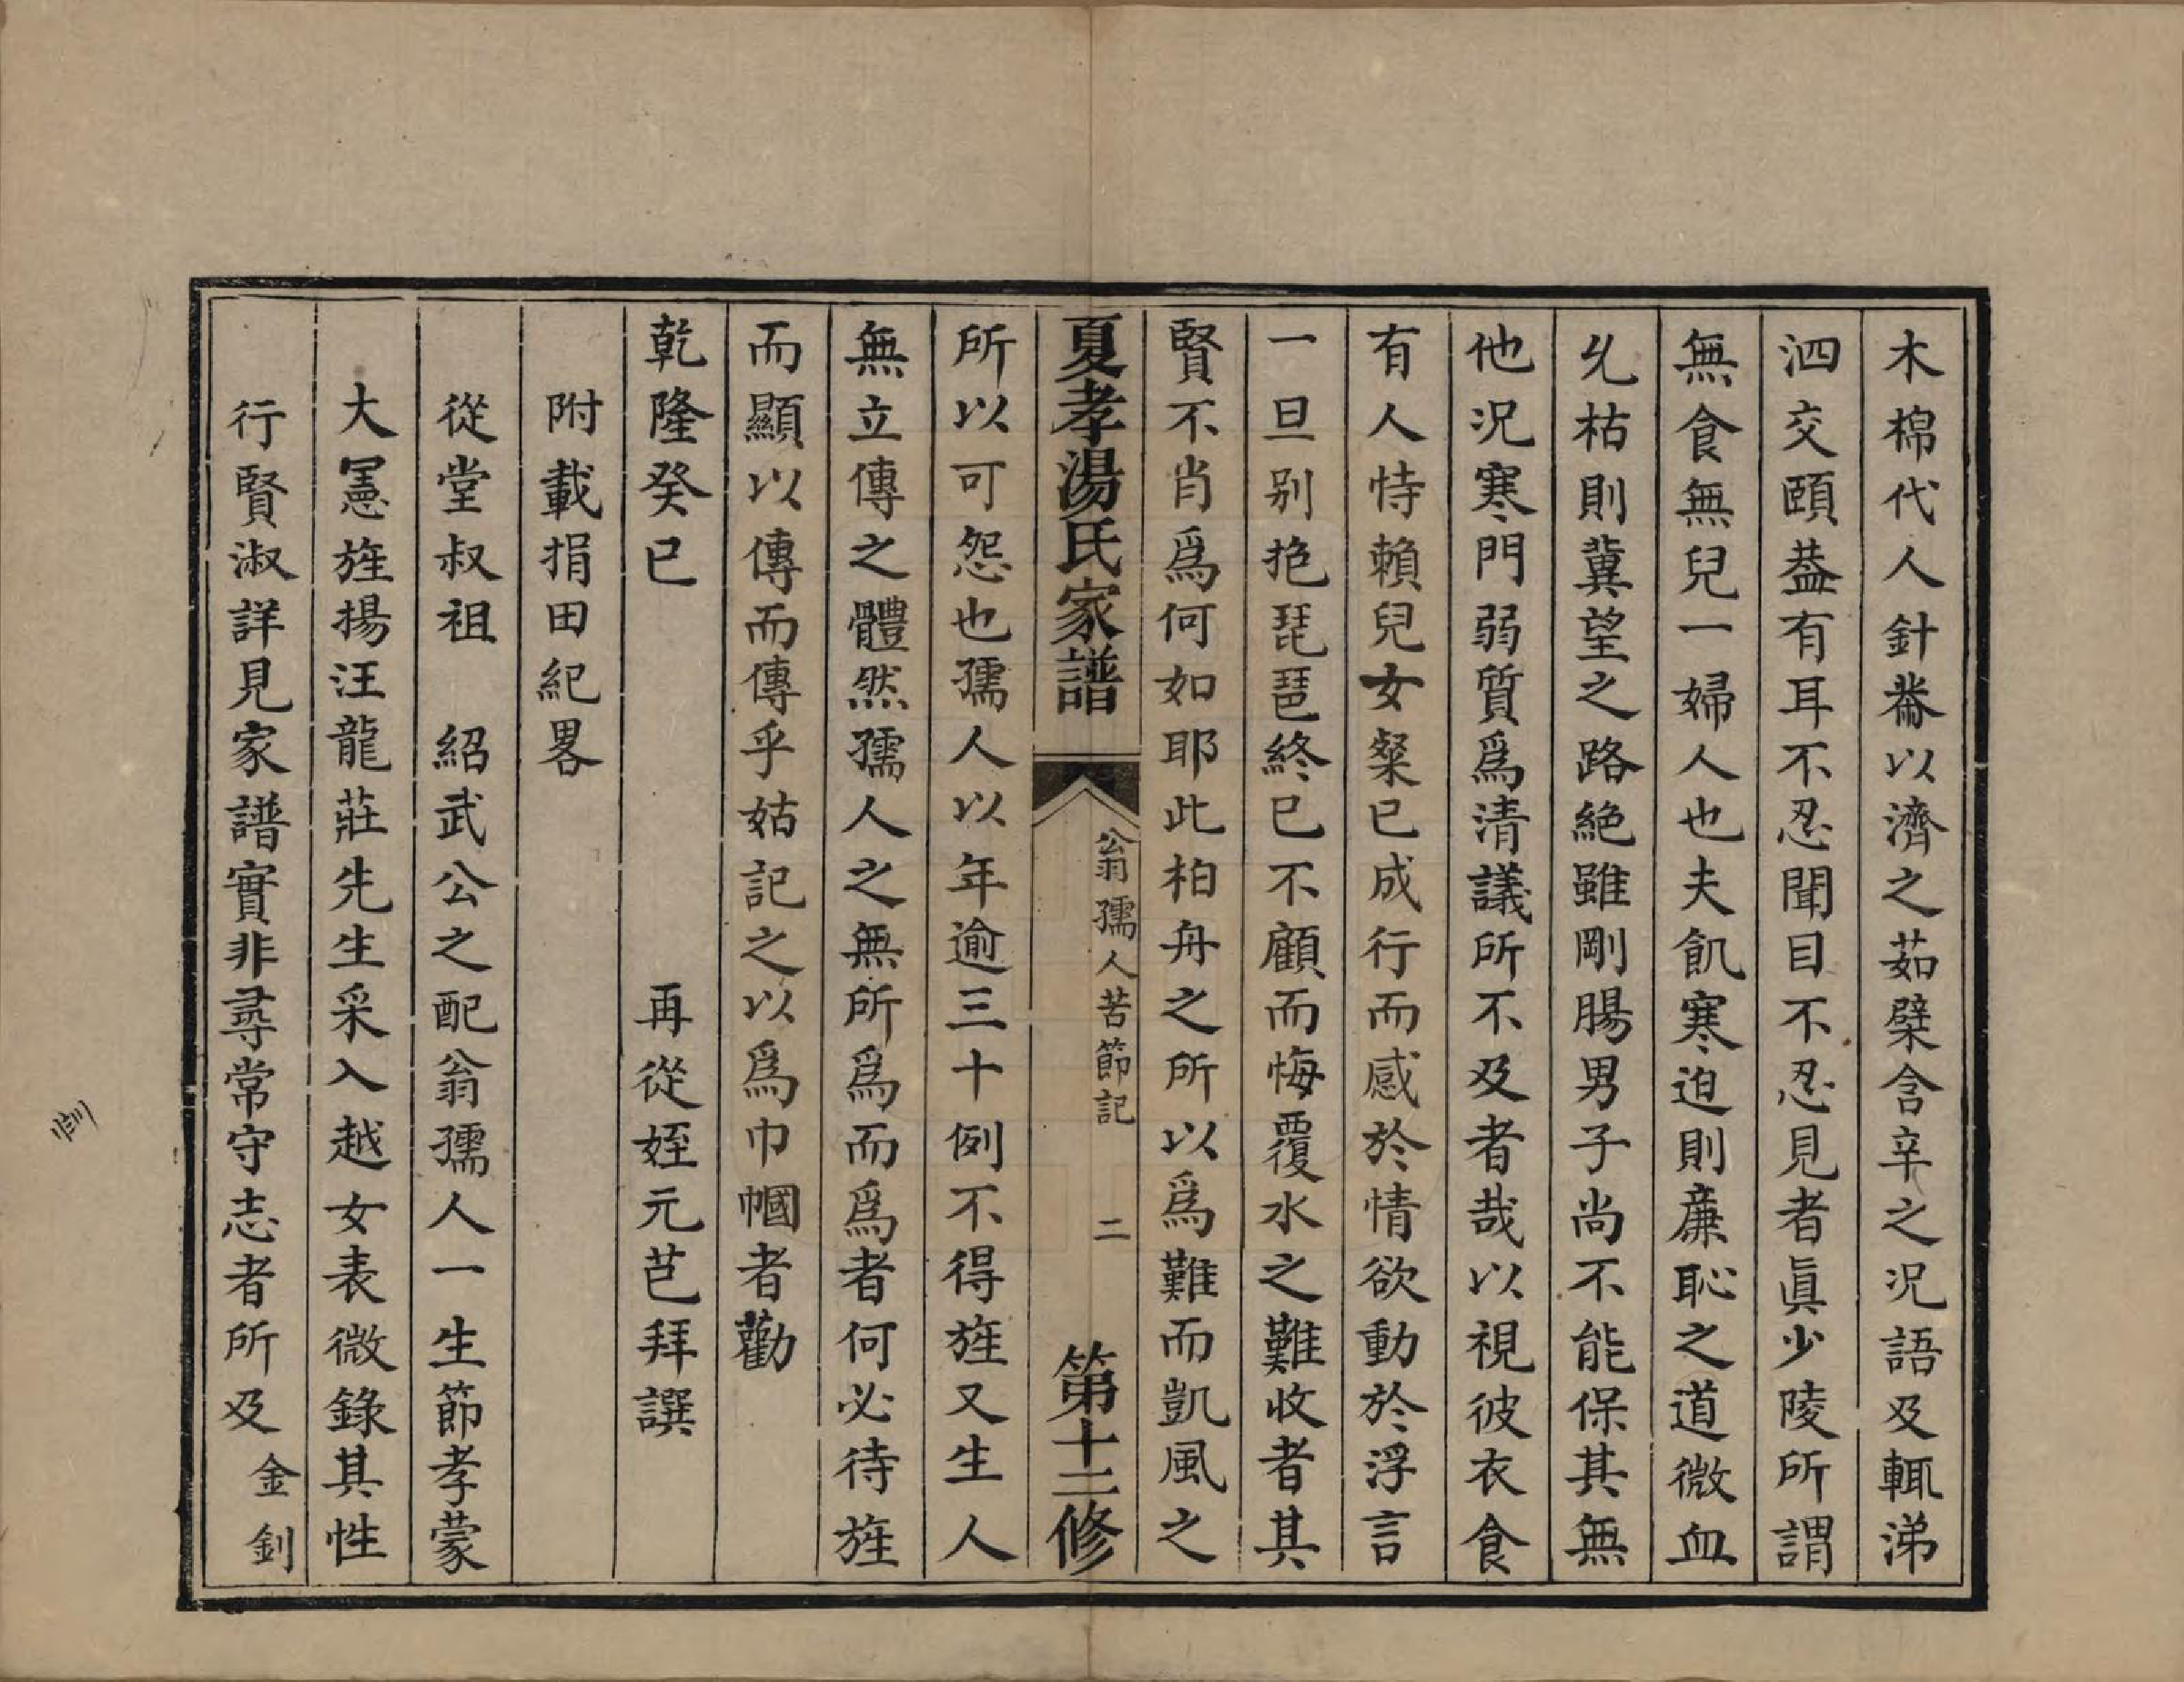 木棉代人針黹以濟之茹櫱含辛之況語及輒涕
泗交頤葢有耳不忍聞目不忍見者眞少陵所謂
無食無兒一婦人也夫飢寒迫則廉恥之道微血
氣枯則冀望之路絕雖剛腸男子尚不能保其無
他況寒門弱質爲清議所不及者哉以視彼衣食
有人恃賴兒女粲已成行而感於情欲動於浮言
一旦別抱琵琶終已不顧而悔覆水之難收者其
賢不肖爲何如耶此柏舟之所以爲難而凱風之
夏孝湯氏家譜 翁孺人苦節記 二 第十二修
所以可怨也孺人以年逾三十例不得旌又生人
無立傳之體然孺人之無所爲而爲者何必待旌
而顯以傳而傳乎姑記之以爲巾幗者勸
乾隆癸巳 再從姪元芑拜譔
附載捐田紀畧
從堂叔祖 紹武公之配翁孺人一生節孝蒙
大憲旌揚汪龍莊先生采入越女表微錄其性
行賢淑詳見家譜實非尋常守志者所及 金釗